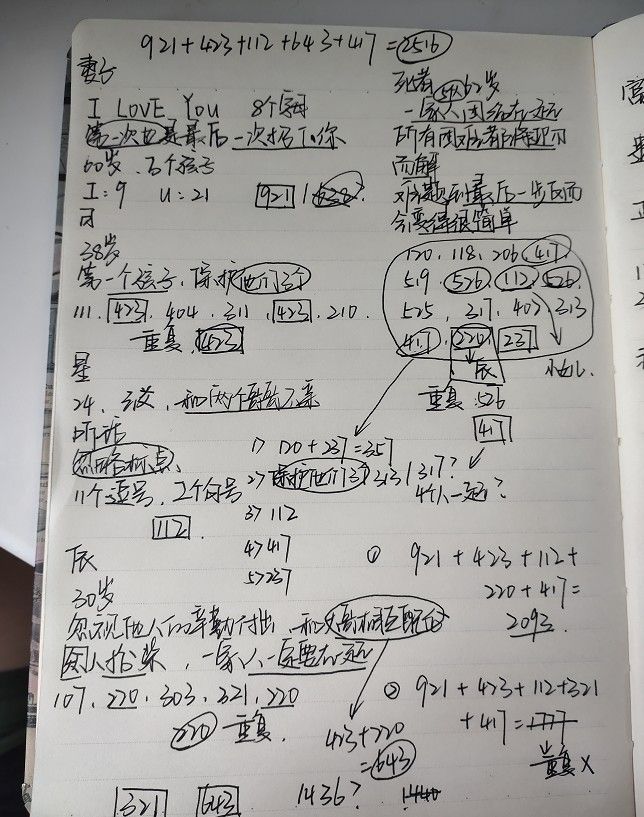 921+423+112+643+417=2516
妻子
I LOVE YOU 8个字母
第一次也是最后一次招了你
60岁、百个孩子
I:9 U=21 921
38岁
第一个孩子,保护他们3个
111、423、404、311、423、210、
重复、423
星
24、
听话
忽略标点、
11个逗号、2个句号
112
辰
30岁
忽视他人的辛勤付出、和
一家人一定要在一起
107、220、303、321、220
220 重复、
321 643
423+220
=643
1436? 1440
死者 62岁
一家人团结在一起
所有困难都将迎刃
而解
难题到最后一步反而
会变得很简单
120、118、206、417、
519、526、112、526、
525、317、402、313
417、220、237
辰
重复:526
417
1> 120+237=357
2> 保护他们3个 313/317?
4个人一起?
3> 112
4> 417
5> 237
① 921+423+112+
220+417=
2093
② 921+423+112+321
+417=1777
重复X